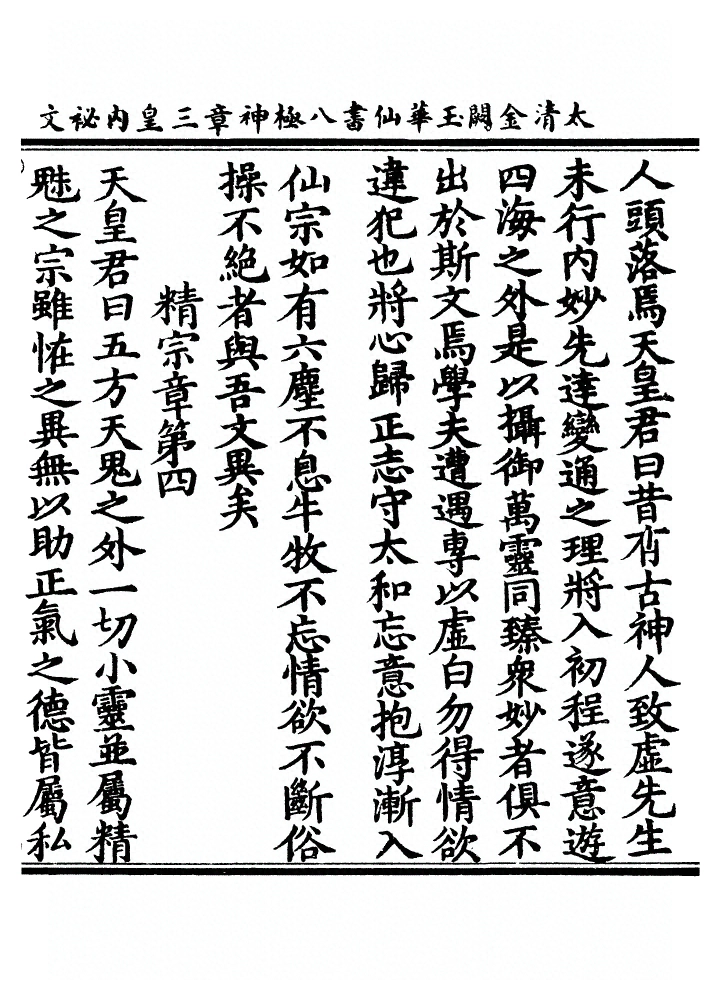 太清金闕玉華仙書八極神章三皇內祕文
人頭落焉天皇君曰昔有古神人致虛先生
未行內妙先達變通之理將入初程遂意遊
四海之外是以攝御萬靈同臻衆妙者俱不
出於斯文焉學夫遭遇專以虛白勿得情欲
違犯也將心歸正志守太和忘意抱淳漸入
仙宗如有六塵不息牛牧不忘情欲不斷俗
操不絕者與吾文異矣
精宗章第四
天皇君曰五方天鬼之外一切小靈並屬精
魅之宗雖恠之異無以助正氣之德皆屬私